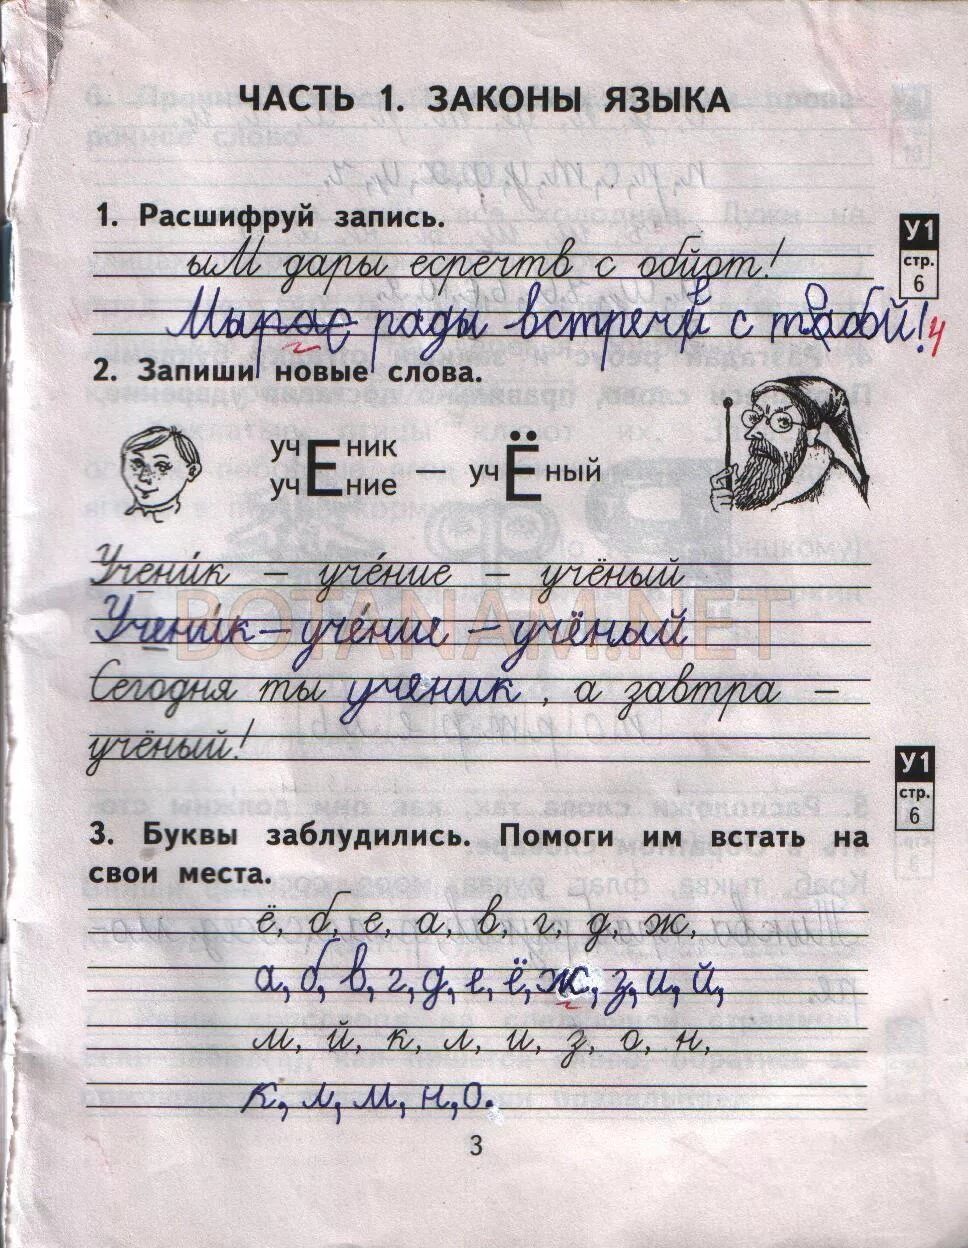 ЧАСТЬ 1. ЗАКОНЫ ЯЗЫКА
1. Расшифруй запись.
У1
стр.
6
ыМ дары есречтв с обйот!
Мы рады встречи с тобой! 4
2. Запиши новые слова.
учЕник
учЕние
учЁный
Учени́к – уче́ние – учёный
BOTANAM.NET
Учени́к – уче́ние – учёный
Сегодня ты ученик, а завтра –
учёный!
У1
стр.
6
3. Буквы заблудились. Помоги им встать на
свои места.
ё, б, е, а, в, г, д, ж,
а, б, в, г, д, е, ё, ж, з, и, й,
м, й, к, л, и, з, о, н,
к, л, м, н, о.
3